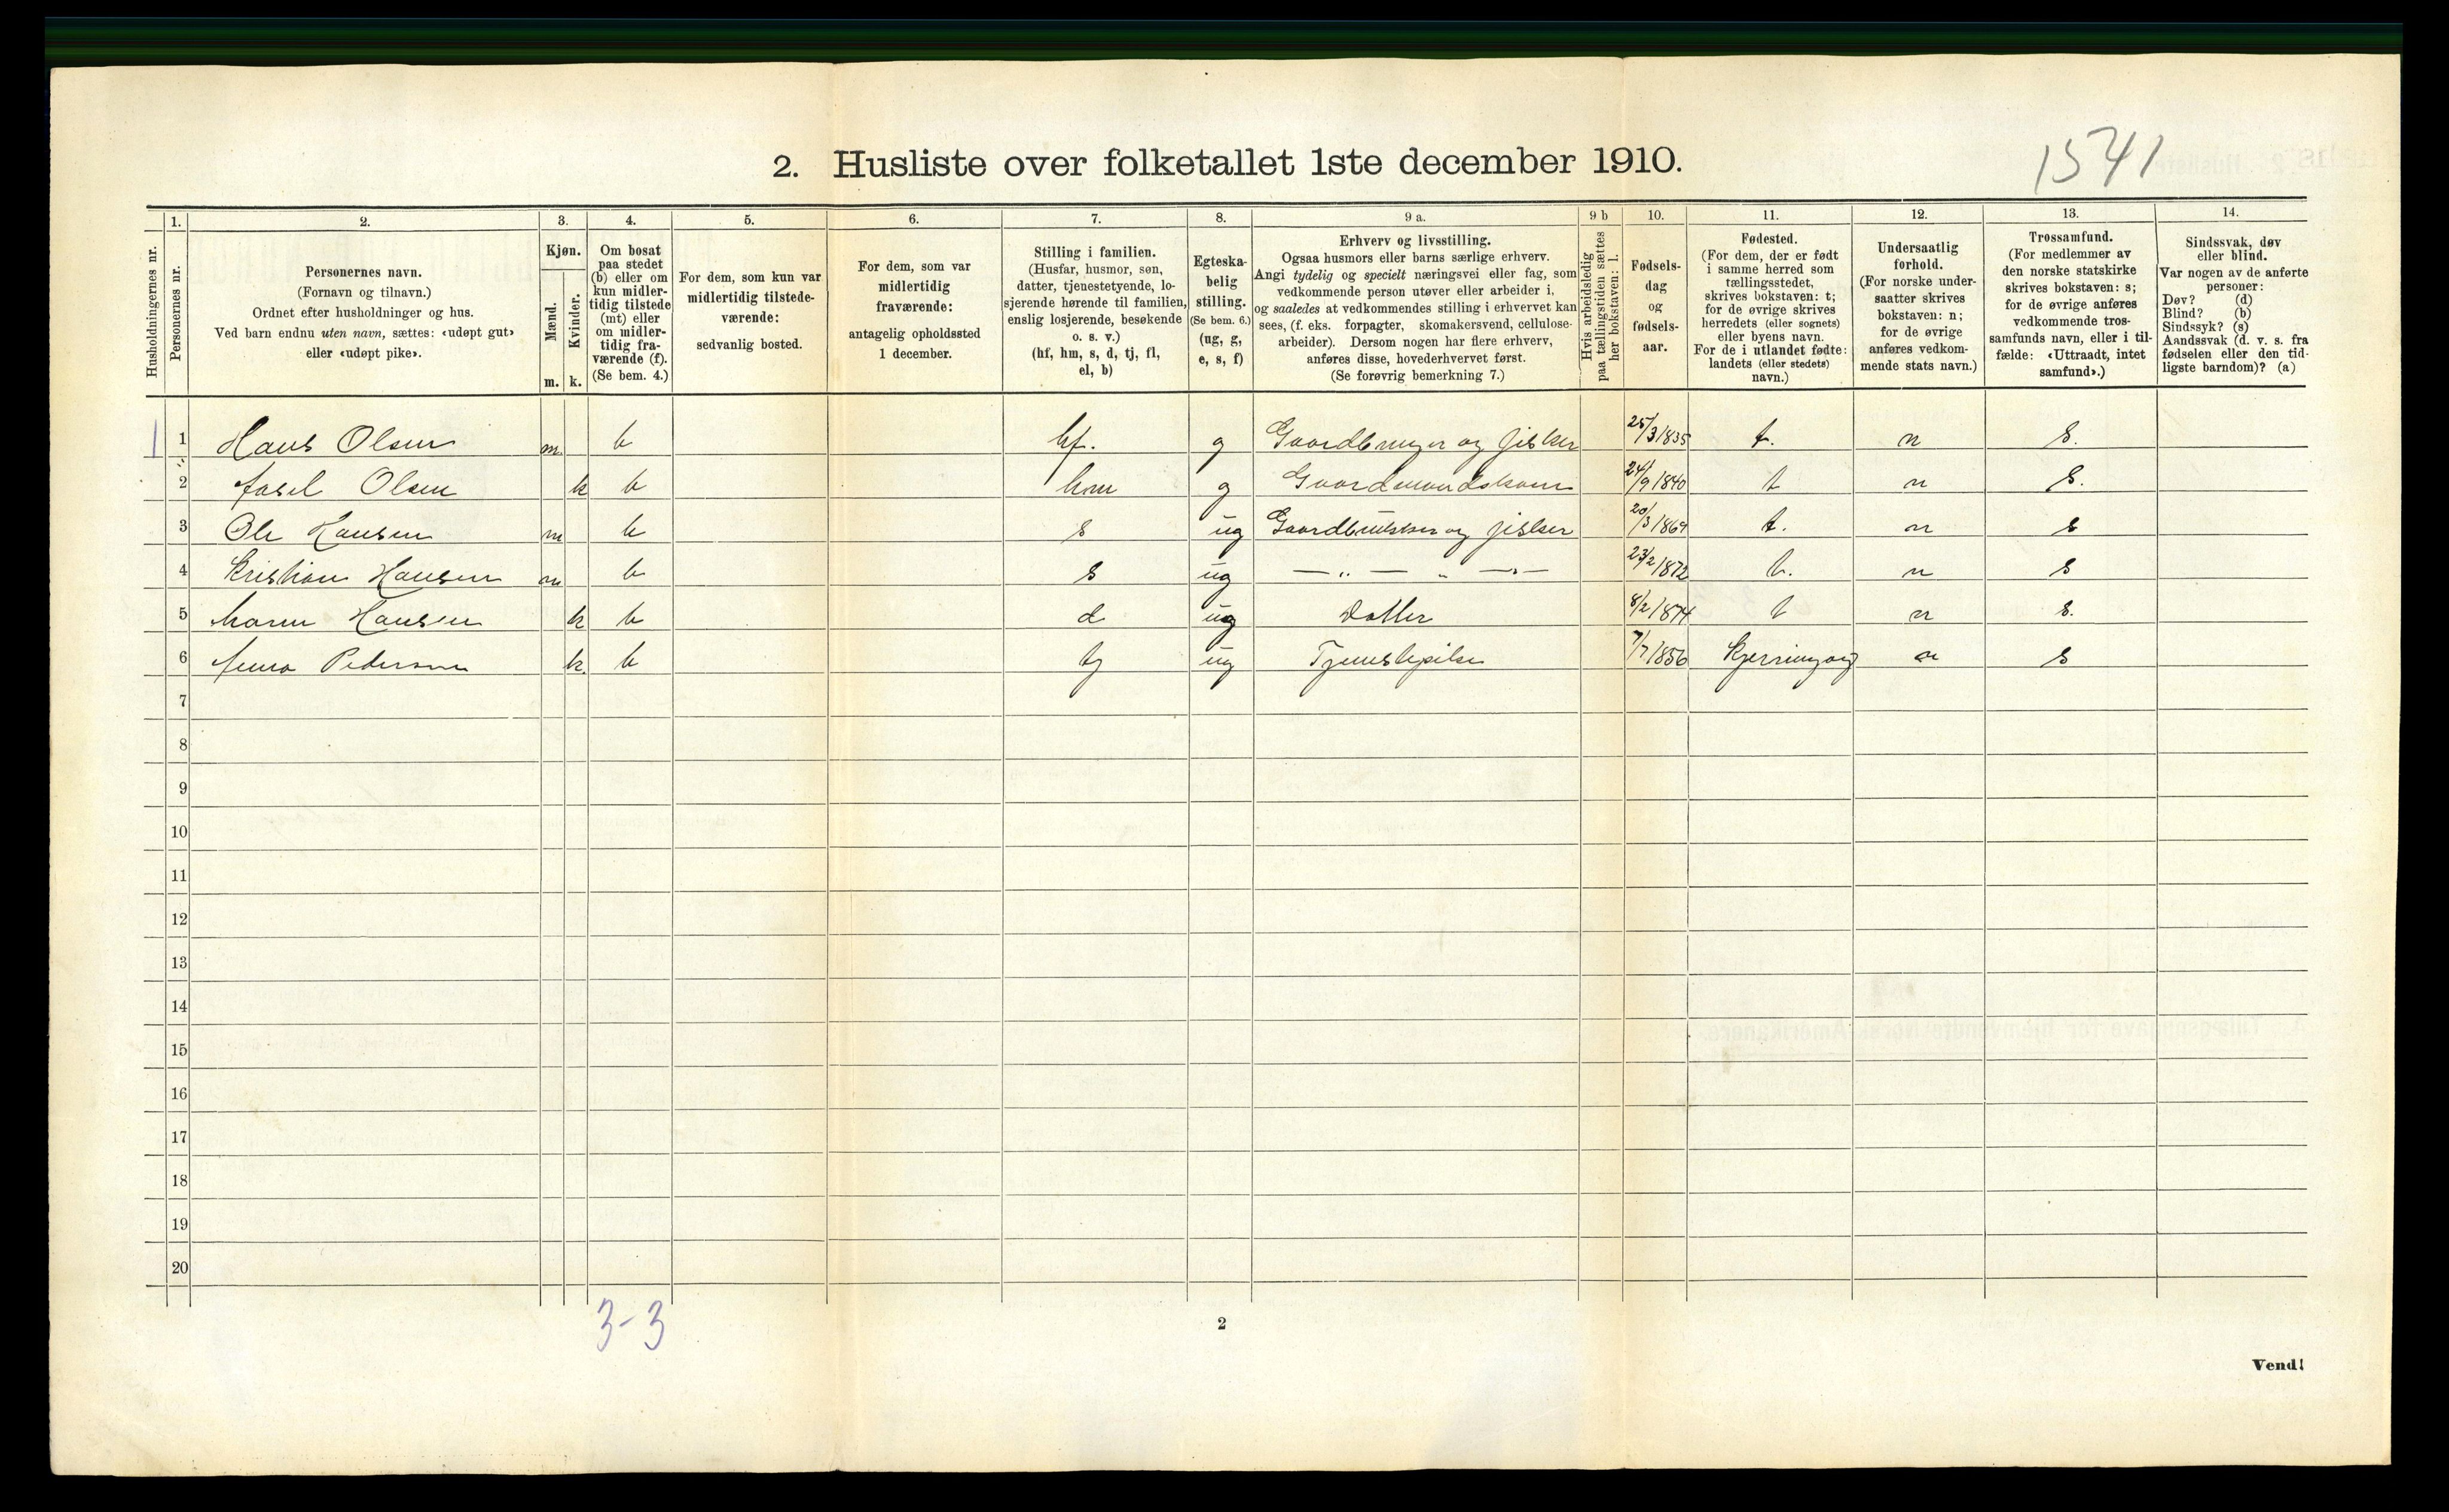 2. Husliste over folketallet 1ste december 1910.
1541
Husholdningernes nr.
1.
Personernes nr.
2.
Personernes navn.
(Fornavn og tilnavn.)
Ordnet efter husholdninger og hus.
Ved barn endnu uten navn, sættes: «udøpt gut»
eller «udøpt pike».
3.
Kjøn.
Mænd.
Kvinder.
m. k.
4.
Om bosat
paa stedet
(b) eller om
kun midler-
tidig tilstede
(mt) eller
om midler-
tidig fra-
værende (f).
(Se bem. 4.)
5.
For dem, som kun var
midlertidig tilstede-
værende:
sedvanlig bosted.
6.
For dem, som var
midlertidig
fraværende:
antagelig opholdssted
1 december.
7.
Stilling i familien.
(Husfar, husmor, søn,
datter, tjenestetyende, lo-
sjerende hørende til familien,
enslig losjerende, besøkende
o. s. v.)
(hf, hm, s, d, tj, fl,
el, b)
8.
Egteska-
belig
stilling.
(Se bem. 6.)
(ug, g,
e, s, f)
9 a.
Erhverv og livsstilling.
Ogsaa husmors eller barns særlige erhverv.
Angi tydelig og specielt næringsvei eller fag, som
vedkommende person utøver eller arbeider i,
og saaledes at vedkommendes stilling i erhvervet kan
sees, (f. eks. forpagter, skomakersvend, cellulose-
arbeider). Dersom nogen har flere erhverv,
anføres disse, hovederhvervet først.
(Se forøvrig bemerkning 7.)
9 b
Hvis arbeidsledig
paa tællingstiden sættes
her bokstaven: l.
10.
Fødsels-
dag
og
fødsels-
aar.
11.
Fødested.
(For dem, der er født
i samme herred som
tællingsstedet,
skrives bokstaven: t;
for de øvrige skrives
herredets (eller sognets)
eller byens navn.
For de i utlandet fødte:
landets (eller stedets)
navn.)
12.
Undersaatlig
forhold.
(For norske under-
saatter skrives
bokstaven: n;
for de øvrige
anføres vedkom-
mende stats navn.)
13.
Trossamfund.
(For medlemmer av
den norske statskirke
skrives bokstaven: s;
for de øvrige anføres
vedkommende tros-
samfunds navn, eller i til-
fælde: «Uttraadt, intet
samfund».)
14.
Sindssvak, døv
eller blind.
Var nogen av de anførte
personer:
Døv? (d)
Blind? (b)
Sindssyk? (s)
Aandssvak (d. v. s. fra
fødselen eller den tid-
ligste barndom)? (a)
1 1 Hans Olsen m b hf. g Gaardbruger og fisker 25/3 1835 t. n s.
2 Olsen k b hm g Gaardmandskone 24/9 1840 t n s.
3 Ole Hansen m b s ug og fisker 20/3 1869 t. n s
4 Kristian Hansen m b s ug — „ — „ — „ — 23/2 1872 t. n s
5 Maren Hansen k b d ug Datter 8/2 1874 t n s.
6 Anna Pedersen k b tj ug Tjenestepike 7/7 1856 Kjerringøy n s
7
8
9
10
11
12
13
14
15
16
17
18
19
20
3-3
2
Vend!